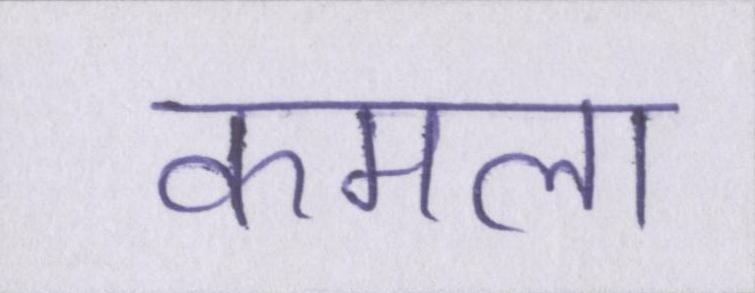 कमला